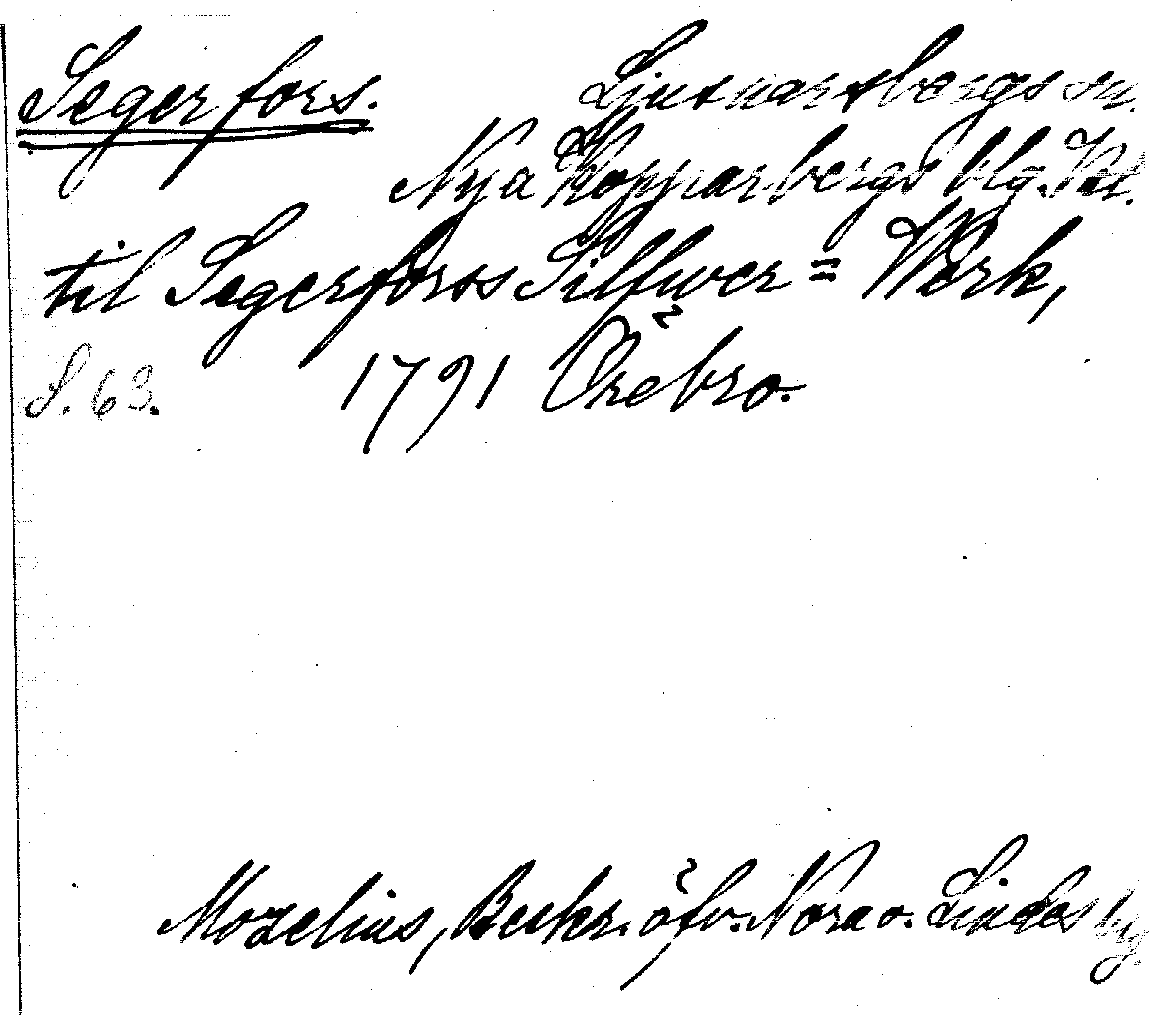 Segerfors. Ljusnarsbergs sn.
Nya Kopparbergs blg.
til Segerforss Silfwer = Werk,
S. 63. 1791 Örebro.
Mozelius, Beskr. öfv. Nora o. Lindes